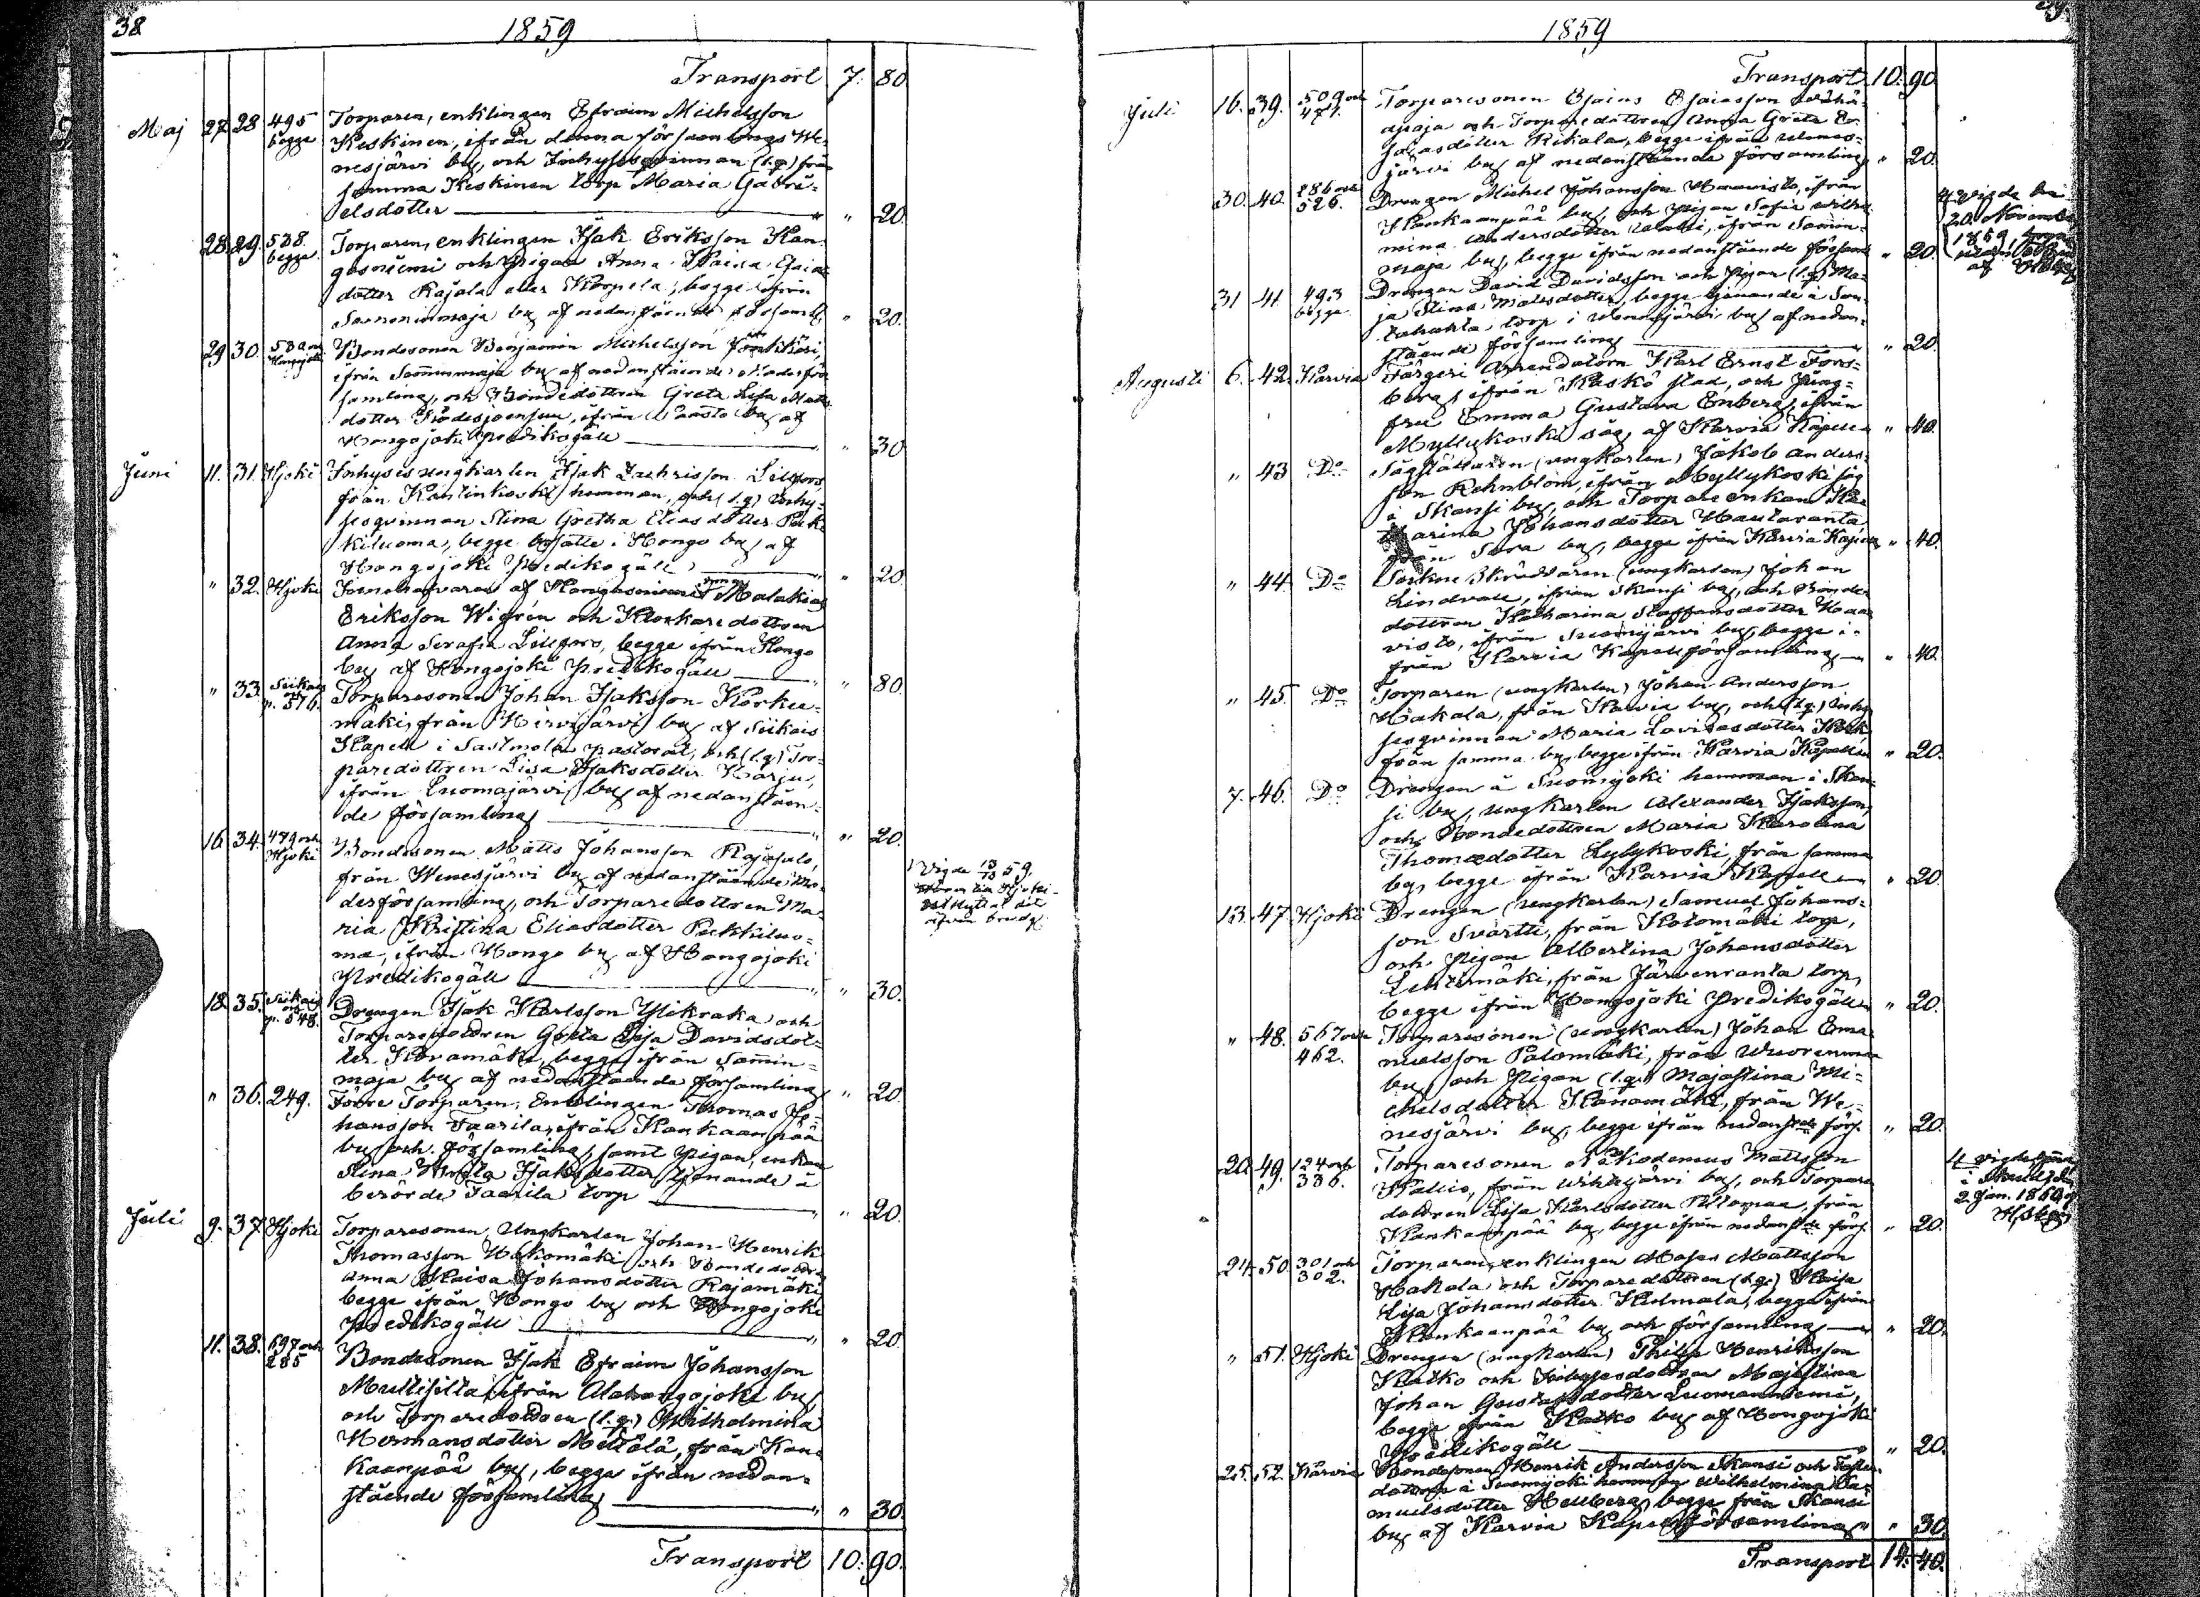 38
1859
Transport 7. 80.
Maj 27. 28. 495 begge Torparen, enklingen Efraim Michelsson
Keskinen, ifrån denna församlings We-
nesjärvi by, och Inhysesqvinnan (l.q) från
samma Keskinen torp Maria Gabri-
elsdotter " 20.
28. 29. 538. begge Torparen, enklingen Isak Eriksson Kan-
gasniemi och Pigan Anna Kaisa Esaias
dotter Rajala eller Korpela, begge ifrån
by af nedanstående församl. " 20.
29 30. Bondesonen Benjamin Michelsson
ifrån Samminmaja by af nedanstående Moderför
samling, och Bondedottren Greta Lisa Matts
dotter ifrån by af
Hongojoki Predikogäll " 30
Juni 11. 31. Hjoki Inhyses ungkarlen Isak Zachrisson Lillfors,
från Kantinkoski hemman, och (l.q) Inhy-
sesqvinnan Stina Gretha Eliasdotter Puk-
kiluoma, begge bosatte i Hongo by af
Hongojoki Predikogäll " 20.
" 32. Hjoki af Kangasniemi Malakias
Eriksson Wigrén och Klockaredottren
Anna Serafia Lillfors, begge ifrån Hongo
by af Hongojoki Predikogäll " 80.
" 33. Siikais och p. 576. Torparesonen Johan Isaksson Korku-
mäki, från Hirvijärvi by af Siikais
Kapell i Sastmola pastorat, och (l.q) Tor-
paredottren Lisa Isaksdotter Harju,
ifrån Luomajärvi by af nedanståen-
de församling " 20.
16. 34. 479 och Hjoki Bondesonen Matts Johansson Rajasalo,
från Wenesjärvi by af nedanstående Mo-
derförsamling, och Torparedottren Ma-
ria Kristina Eliasdotter Pukkiluo-
ma, ifrån Hongo by af Hongojoki
Predikogäll " 30.
Vigde 59.
18. 35. Siikais och p. 548. Drengen Isak Karlsson Ylikraka och
Torparedottren Greta Lisa Davidsdot-
ter Koramäki, begge ifrån Sammin-
maja by af nedanstående församling " 20.
" 36. 249. Förre Torparen, Enklingen Thomas Jo-
hansson Taarila, ifrån Kankaanpää
by och församling, samt Pigan, enkan
Stina Isaksdotter tjenande å
berörde Taarila torp " 20.
Juli 9. 37. Hjoki Torparesonen, Ungkarlen Johan Henrik
Thomasson Hakomäki och Bondedottren
Anna Kaisa Johansdotter Rajamäki,
begge ifrån Hongo by och Hongojoki
Predikogäll " 20.
11. 38. 697 och 285 Bondesonen Isak Efraim Johansson
Multisilta, ifrån Alahongojoki by
och Torparedottren (l.q.) Wilhelmina
Hermansdotter Mettälä, från Kan-
kaanpää by, begge ifrån nedan-
stående församling " 30.
Transport 10. 90.
1859
Transport 10. 90.
Juli 16. 39. 509 och 471. Torparesonen Esaias Esaiasson
och Torparedottren Anna Greta E-
saiasdotter Kikala, begge ifrån Wenes-
järvi by af nedanstående församling " 20.
30. 40. 286 och 526. Drengen Michel Johansson Haavisto, ifrån
Kankaanpää by, och Pigan Sofia Wilhel-
mina Andersdotter ifrån Sammin-
maja by, begge ifrån nedanstående församl. " 20.
vigde
20. November
1859
31 41. 493 begge Drengen David Davidsson och Pigan (l.q) Ma-
ja Stina Matesdotter, begge tjenande å
torp i Wenesjärvi by af nedan-
stående församling " 20.
Augusti 6. 42. Karvia Färgeri Arrendatorn Karl Ernst Fors-
berg, ifrån Kaskö stad, och Jung-
fru Emma Gustava Enberg, ifrån
Myllykoski såg af Karvia Kapell " 40.
" 43 Do (ungkarlen) Jakob Anders-
son Rehnblom, ifrån Myllykoski såg
i Skansi by, och Torpare enkan Ka-
tarina Johansdotter Hautaranta,
från Sara by, begge ifrån Karvia Kapell " 40.
" 44. Do Sockne Skräddaren (ungkarlen) Johan
Lindvall, ifrån Skansi by, och Bonde-
dottren Katharina Staffansdotter Haa-
visto, ifrån Suomijärvi by, begge i-
från Karvia Kapellförsamling " 40.
" 45. Do Torparen (ungkarlen) Johan Andersson
Hakala, från Karvia by, och (l.q) Inhy-
sesqvinnan Maria Lovisasdotter
från samma by, begge ifrån Karvia Kapell " 20.
7. 46. Do Drengen å Suomijoki hemman i Skan-
si by, ungkarlen Alexander Isaksson,
och Bondedottren Maria Karolina
Thomasdotter Lylykoski, från samma
by, begge ifrån Karvia Kapell " 20.
13. 47. Hjoki Drengen (ungkarlen) Samuel Johans-
son Svartti, från Kotomäki torp,
och Pigan Albertina Johansdotter
Lehtimäki, från Järvenranta torp,
begge ifrån Hongojoki Predikogäll " 20.
" 48. 567 och 462. Torparesonen (ungkarlen) Johan Ema-
nuelsson Palomäki, från Wuorenmaa
by och Pigan (l.q) Majastina Mi-
chelsdotter Kanamäki, från We-
nesjärvi by, begge ifrån nedanstde förs. " 20.
20. 49. 124 och 336. Torparesonen Nikodemus Mattsson
Kallio, från Wihtijärvi by, och Torpare
dottren Lisa Karlsdotter från
Kankaanpää by, begge ifrån nedanstde förs. " 20.
vigde
2 Jan. 1860
24. 50. 301 och 302. Torparen, enklingen Moses Mattsson
Hakala och Torparedottren (l.q.) Kaisa
Lisa Johansdotter Kulmala, begge ifrån
Kankaanpää by och församling " 20.
" 51. Hjoki Drengen (ungkarlen) Philip Henriksson
Katko och Inhysesdottren Majastina
Johan Gustafsdotter Luomanniemi,
begge från Katko by af Hongojoki
Predikogäll " 20.
25. 52. Karvia Bondesonen Henrik Andersson Skansi och
å Suomijoki hemman Wilhelmina Sa-
muelsdotter Hellberg, begge från Skansi
by af Karvia Kapellförsamling " 30.
Transport 14. 40.